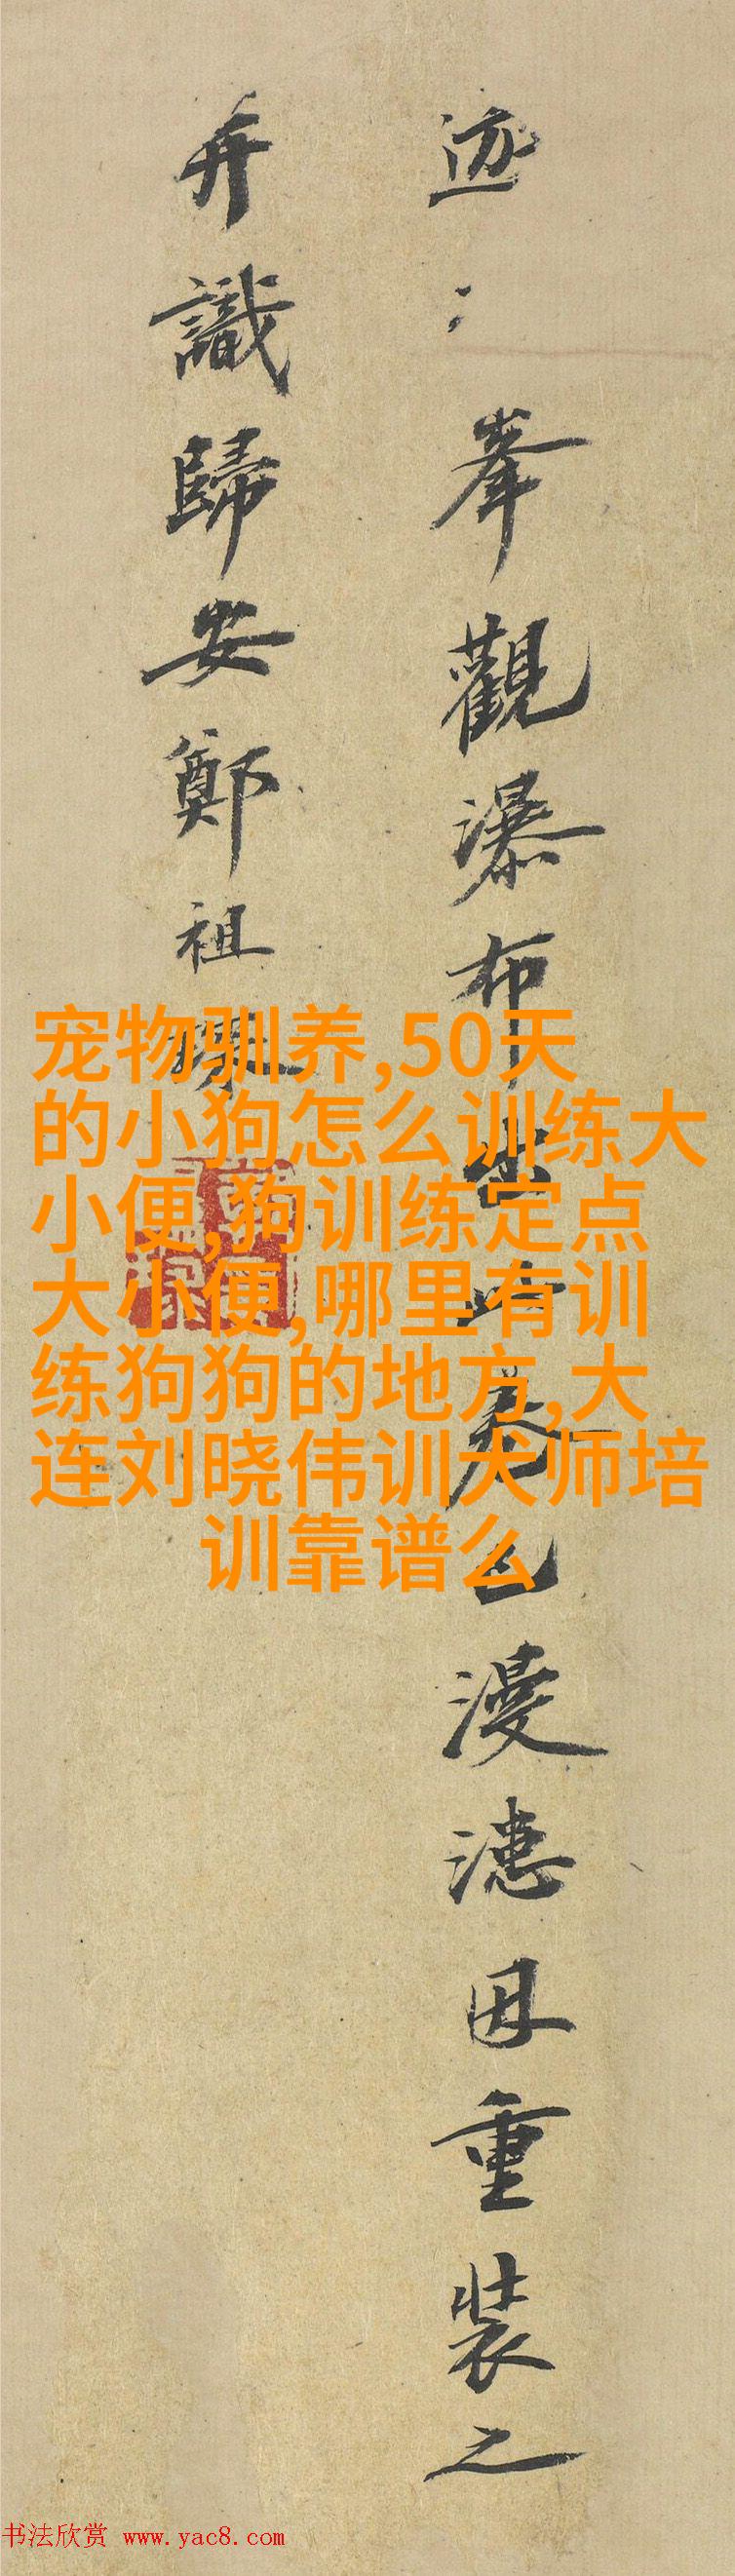 迹〻峯觀瀑布出以卷已漫漶因重裝之
并識歸安鄭祖琛
宠物驯养,50天
的小狗怎么训练大
小便,狗训练定点
大小便,哪里有训
练狗狗的地方,大
连刘晓伟训犬师培
训靠谱么
书法欣赏 www.yac8.com